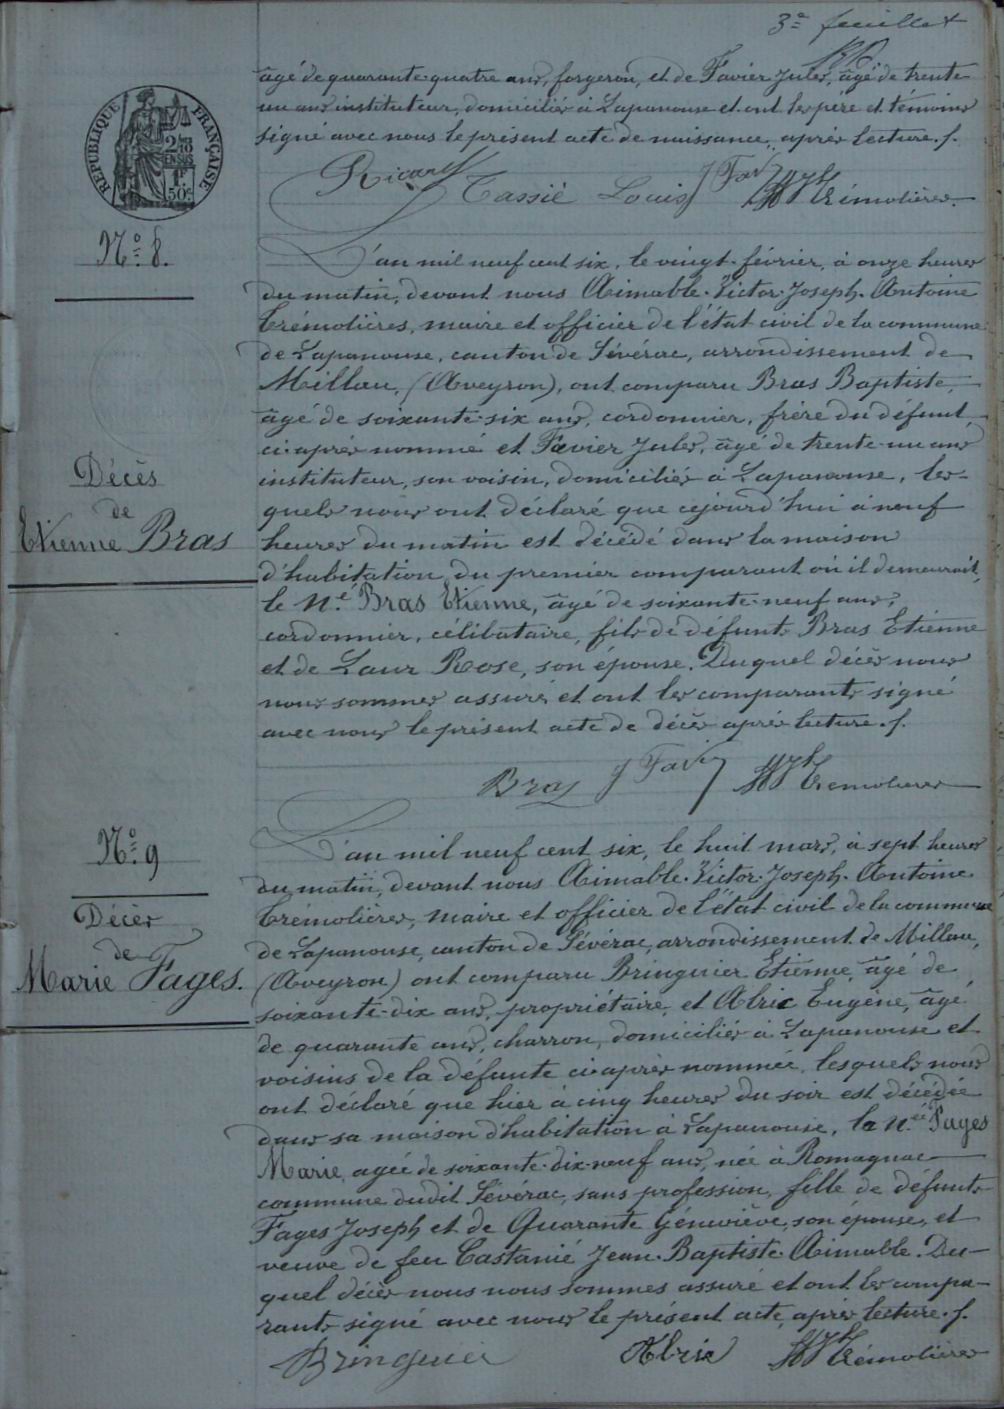 3e feuillet
âgé de quarante-quatre ans, forgeron, et de Favier Jules, âgé de trente
un ans instituteur, domiciliés à Lapanouse et ont les père et témoins
signé avec nous le présent acte de naissance, après lecture.
RÉPUBLIQUE FRANÇAISE
2/10
EN SUS
1F
50c
Ricard Cassié Louis J Fav Trémolières
No 8.
L'an mil neuf cent six, le vingt février, à onze heures
du matin, devant nous Aimable Victor Joseph Antoine
Trémolières, maire et officier de l'état civil de la commune
de Lapanouse, canton de Sévérac, arrondissement de
Millau, (Aveyron), ont comparu Bras Baptiste,
âgé de soixante-six ans, cordonnier, frère du défunt
ci-après nommé et Favier Jules, âgé de trente-un ans
instituteur, son voisin, domiciliés à Lapanouse, les-
quels nous ont déclaré que cejourd'hui à neuf
heures du matin est décédé dans la maison
d'habitation du premier comparant où il demeurait,
le n.é Bras Etienne, âgé de soixante-neuf ans,
cordonnier, célibataire, fils de défunts Bras Etienne
et de Laur Rose, son épouse. Duquel décès nous
nous sommes assuré et ont les comparants signé
avec nous le présent acte de décès après lecture.
Décès
de
Etienne Bras
Bras J Favier Trémolières
No 9
Décès
de
Marie Fages.
L'an mil neuf cent six, le huit mars, à sept heures
du matin, devant nous Aimable Victor Joseph Antoine
Trémolières, maire et officier de l'état civil de la commune
de Lapanouse, canton de Sévérac, arrondissement de Millau,
(Aveyron) ont comparu Bringuier Etienne, âgé de
soixante-dix ans, propriétaire, et Alric Eugène, âgé
de quarante ans, charron, domiciliés à Lapanouse et
voisins de la défunte ci-après nommée, lesquels nous
ont déclaré que hier à cinq heures du soir est décédée
dans sa maison d'habitation à Lapanouse, la n.ée Fages
Marie, agée de soixante-dix-neuf ans, née à Romagnac
commune dudit Sévérac, sans profession, fille de défunts
Fages Joseph et de Quarante Géneviève, son épouse, et
veuve de feu Castanié Jean-Baptiste Aimable. Du-
quel décès nous nous sommes assuré et ont les compa-
rants signé avec nous le présent acte, après lecture.
Bringuier Alric Trémolières